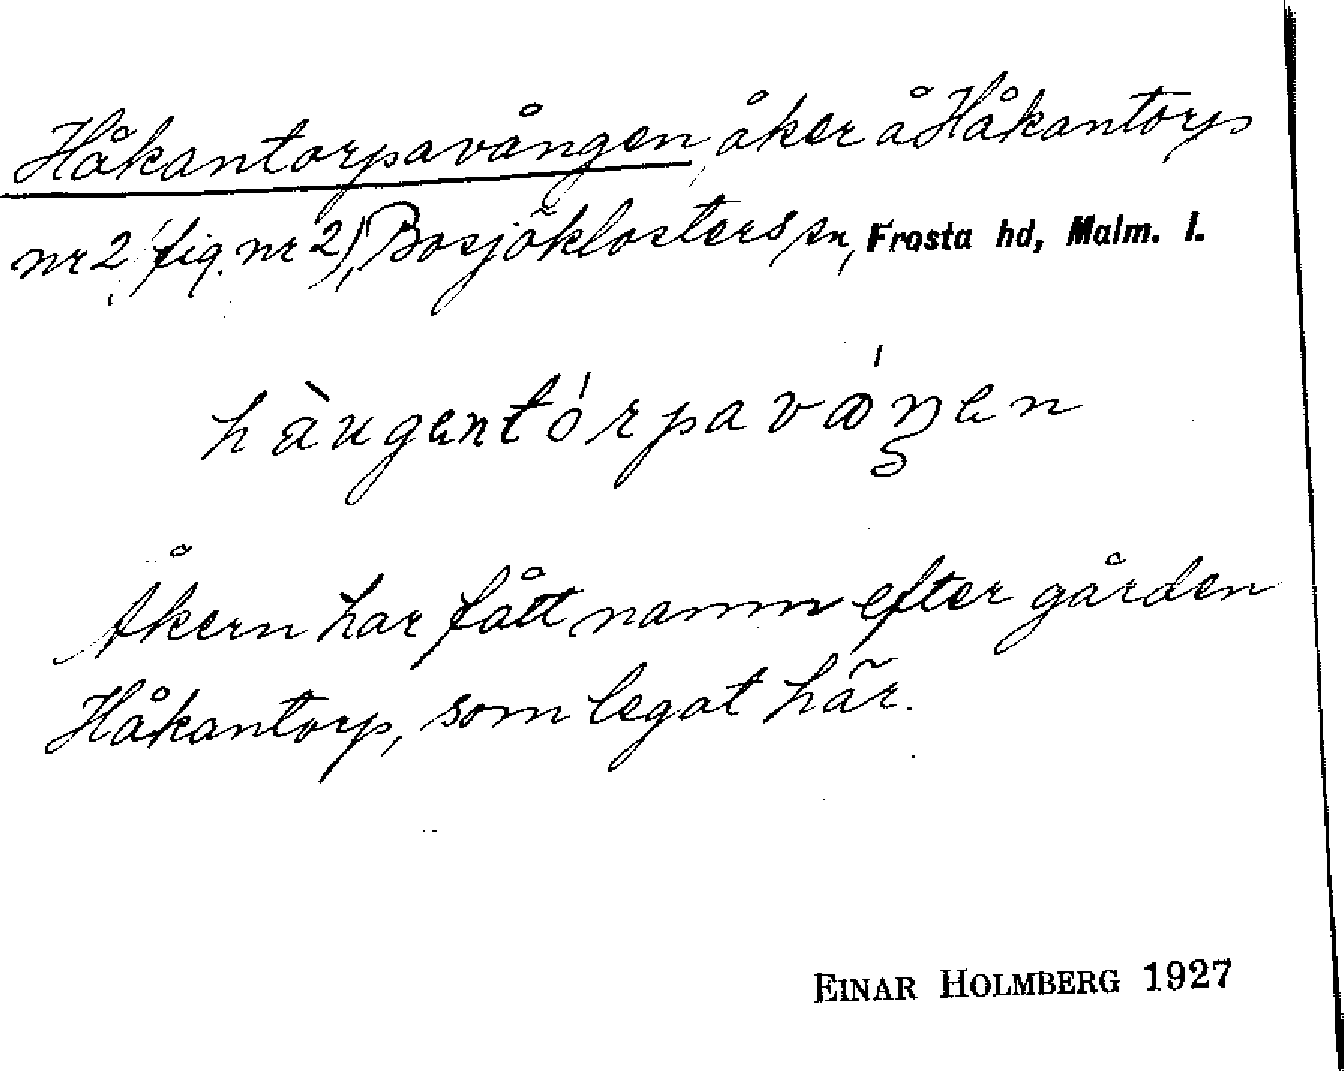 Håkantorpavången, åker å Håkantorp
nr 2 (fig. nr 2), Bosjöklosters sn, Frosta hd, Malm. l.
hàugentórpavǻŋen
Åkern har fått namn efter gården
Håkantorp, som legat här.
EINAR HOLMBERG 1927